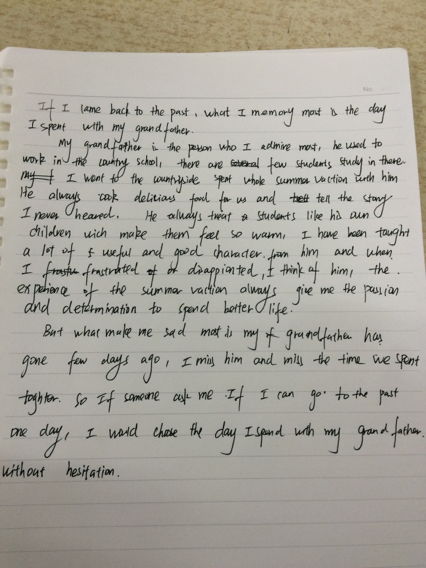 If I came back to the past, what I memory most is the day
I spent with my grandfather.
My grandfather is the person who I admire most, he used to
work in the country school, there are few students study in there.
I went to the countryside spent whole summer vaction with him
He always cook delicious food for us and tell the story
I never heared. He always treat students like his own
children wich make them feel so warm, I have been taught
a lot of useful and good character from him and when
I frustrated or disappionted, I think of him, the
experience of the summer vaction always give me the passion
and determination to spend better life.
But what make me sad most is my grandfather has
gone few days ago, I miss him and miss the time we spent
toghter. So If someone ask me If I can go to the past
one day, I would chose the day I spend with my grandfather.
without hesitation.